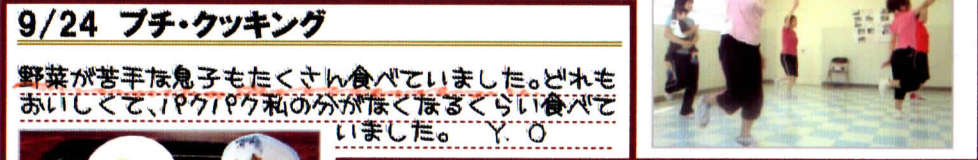 9/24 プチ・クッキング
野菜が苦手な息子もたくさん食べていました。どれも
おいしくて、パクパク私の分がなくなるくらい食べて
いました。 Y. O